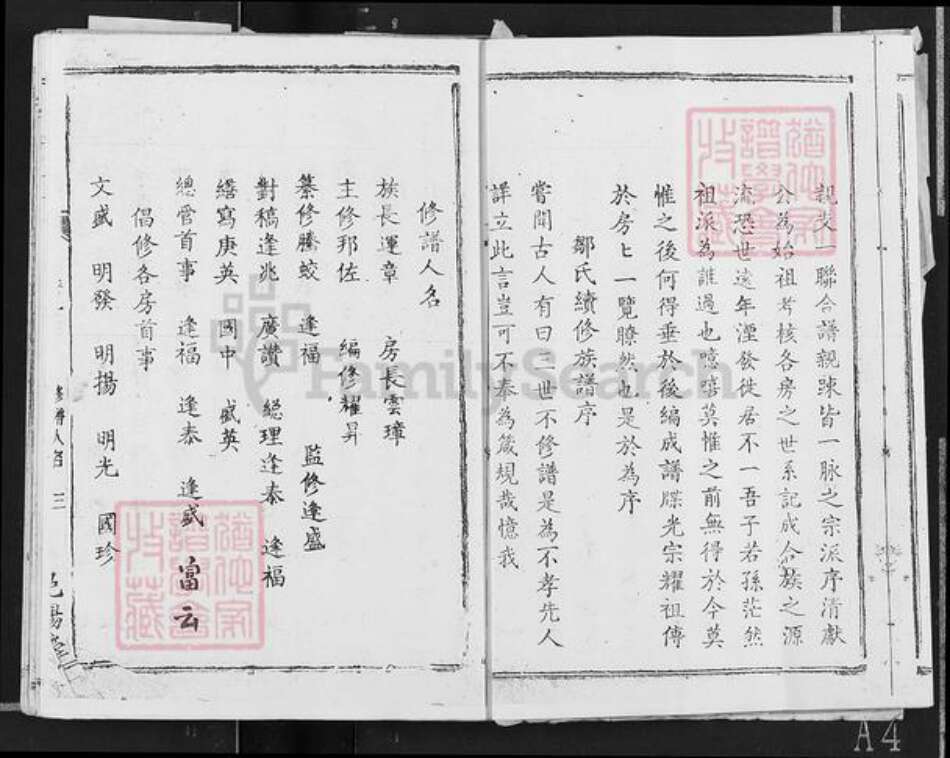 親支一聯合譜親疎皆一脉之宗派序清獻
公為始祖考核各房之世系記成合族之源
流恐世遠年湮發徙居不一吾子若孫茫然
祖派為誰過也噫嘻莫惟之前無得於今莫
惟之後何得垂於後編成譜牒光宗耀祖傳
於房匕一覽瞭然也是於為序
鄒氏續修族譜序
嘗聞古人有曰三世不修譜是為不孝先人
詳立此言豈可不奉為箴規哉憶我
修譜人名
族長運章 房長雲璋
主修邦佐 編修耀昇
纂修騰蛟 逢福 監修逢盛
對稿逢兆 廣讚 總理逢泰 逢福
繕寫庚英 國中 盛英
總管首事 逢福 逢泰 逢盛 富云
倡修各房首事
文盛 明發 明揚 明光 國珍
修譜人名 三
FamilySearch
A4